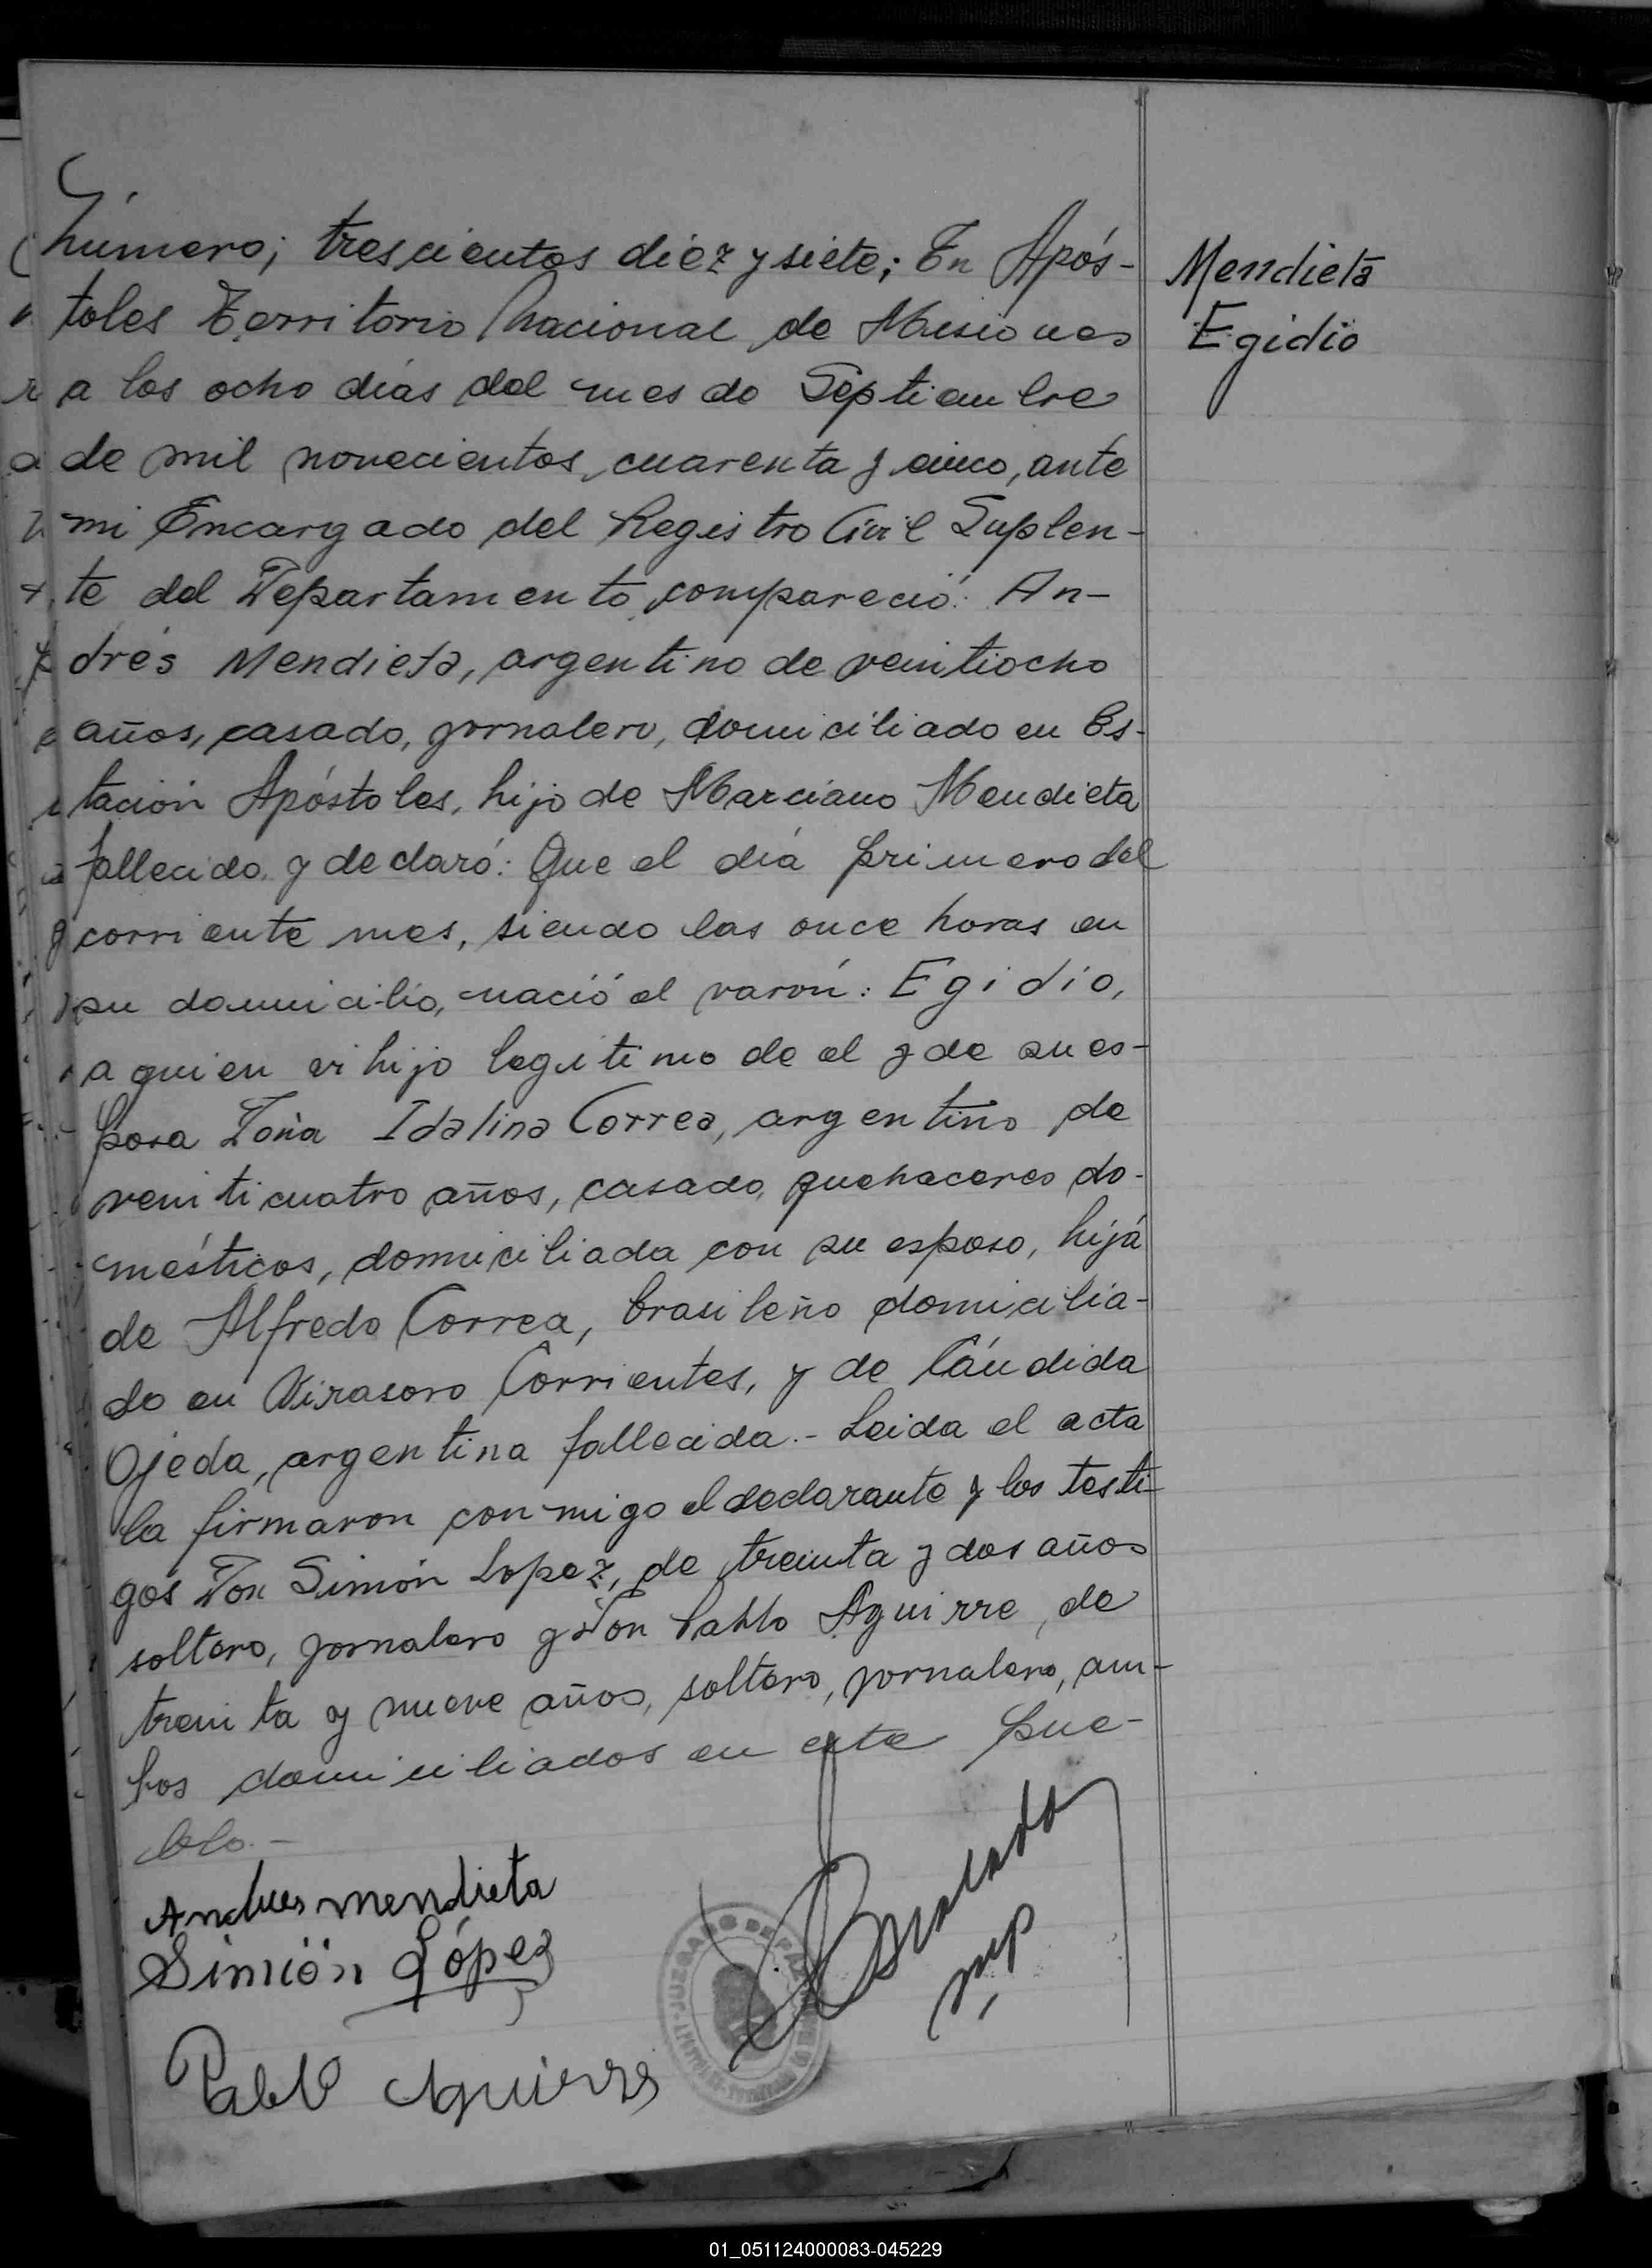 Número; trescientos diez y siete; En Após-
toles Territorio Nacional de Misiones
a los ocho días del mes de Septiembre
de mil novecientos, cuarenta y cinco, ante
mi Encargado del Registro Civil Suplen-
te del Departamento, compareció: An-
drés Mendieta, argentino de veintiocho
años, casado, jornalero, domiciliado en Es-
tación Apóstoles, hijo de Marciano Mendieta
fallecido, y declaró: Que el día primero del
corriente mes, siendo las once horas en
su domicilio, nació el varón: Egidio,
a quien vi hijo legitimo de el y de su es-
posa Doña Idalina Correa, argentino de
veinticuatro años, casado, quehaceres do-
mésticos, domiciliada con su esposo, hija
de Alfredo Correa, brasileño domicilia-
do en Virasoro Corrientes, y de Cándida
Ojeda, argentina fallecida.- Leida el acta
la firmaron conmigo el declarante y los testi-
gos Don Simón Lopez, de treinta y dos años
soltero, jornalero y Don Pablo Aguirre, de
treinta y nueve años, soltero, jornalero, am-
bos domiciliados en este pue-
blo.-
Mendieta
Egidio
Andres mendieta
Simión López
Pablo Aguirre
JUZGADO DE PAZ
01_051124000083-045229